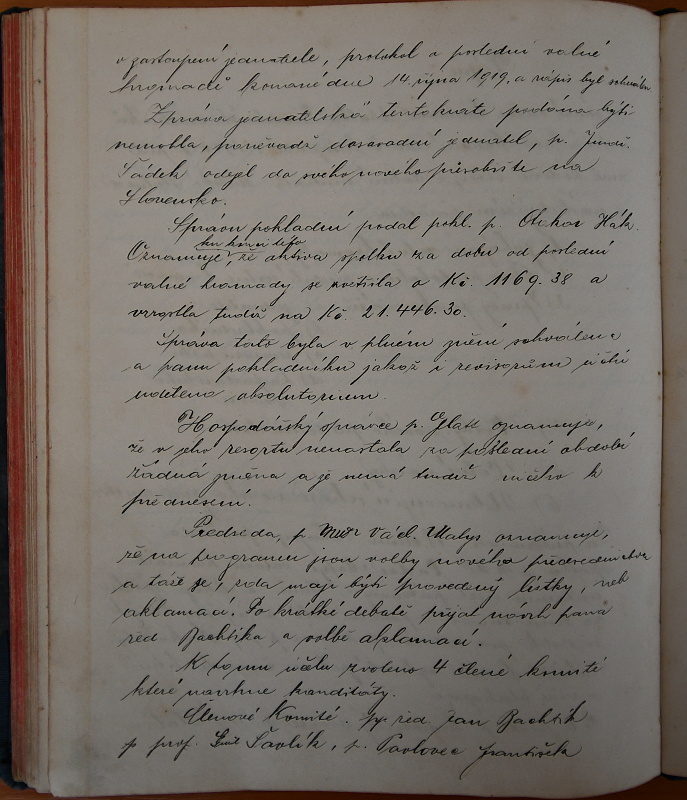 v zastoupení jednatele, protokol o poslední valné
hromadě konané dne 14. října 1919, a zápis byl schválen
Zpráva jednatelská tentokráte podána býti
nemohla, poněvadž dosavadní jednatel, p. Jundr.
Sádek odejel do svého nového působiště na
Slovensko.
Správu pokladní podal pokl. p. Otakar Hák.
ku konci této
Oznamuje, že aktiva spolku za dobu od poslední
valné hromady se zvětšila o Kč. 1169.38 a
vzrostla tudíž na Kč. 21.446.30.
Zpráva tato byla v plném znění schválena
a panu pokladníku jakož i revisorům účtů
uděleno absolutorium.
Hospodářský správce p. Glatt oznamuje,
že v jeho resortu nenastala za poslední období
žádná změna a je nemá tudíž ničeho k
přednesení.
Předseda, p. Mudr Václ. Malys oznamuje,
že na programu jsou volby nového předsednictva
a táže se, zda mají býti provedeny lístky, neb
aklamací. Po krátké debatě přijat návrh pana
řed Bachtíka a volbě aklamací.
K tomu účelu zvoleno 4 členné komité
které navrhne kandidáty.
Členové Komité. pp řed Jan Bachtík
p prof. Emil Pavlík, p. Pavlovec František